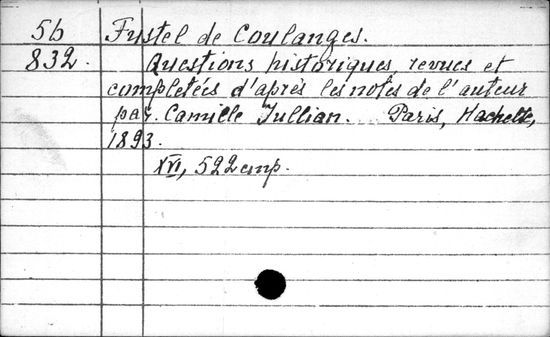 56 Fustel de Coulanges.
832. Questions historiques, revues et
complétées d'après les notes de l'auteur
par Camille Jullian. Paris, Hachette,
1893.
XVI, 522 стр.